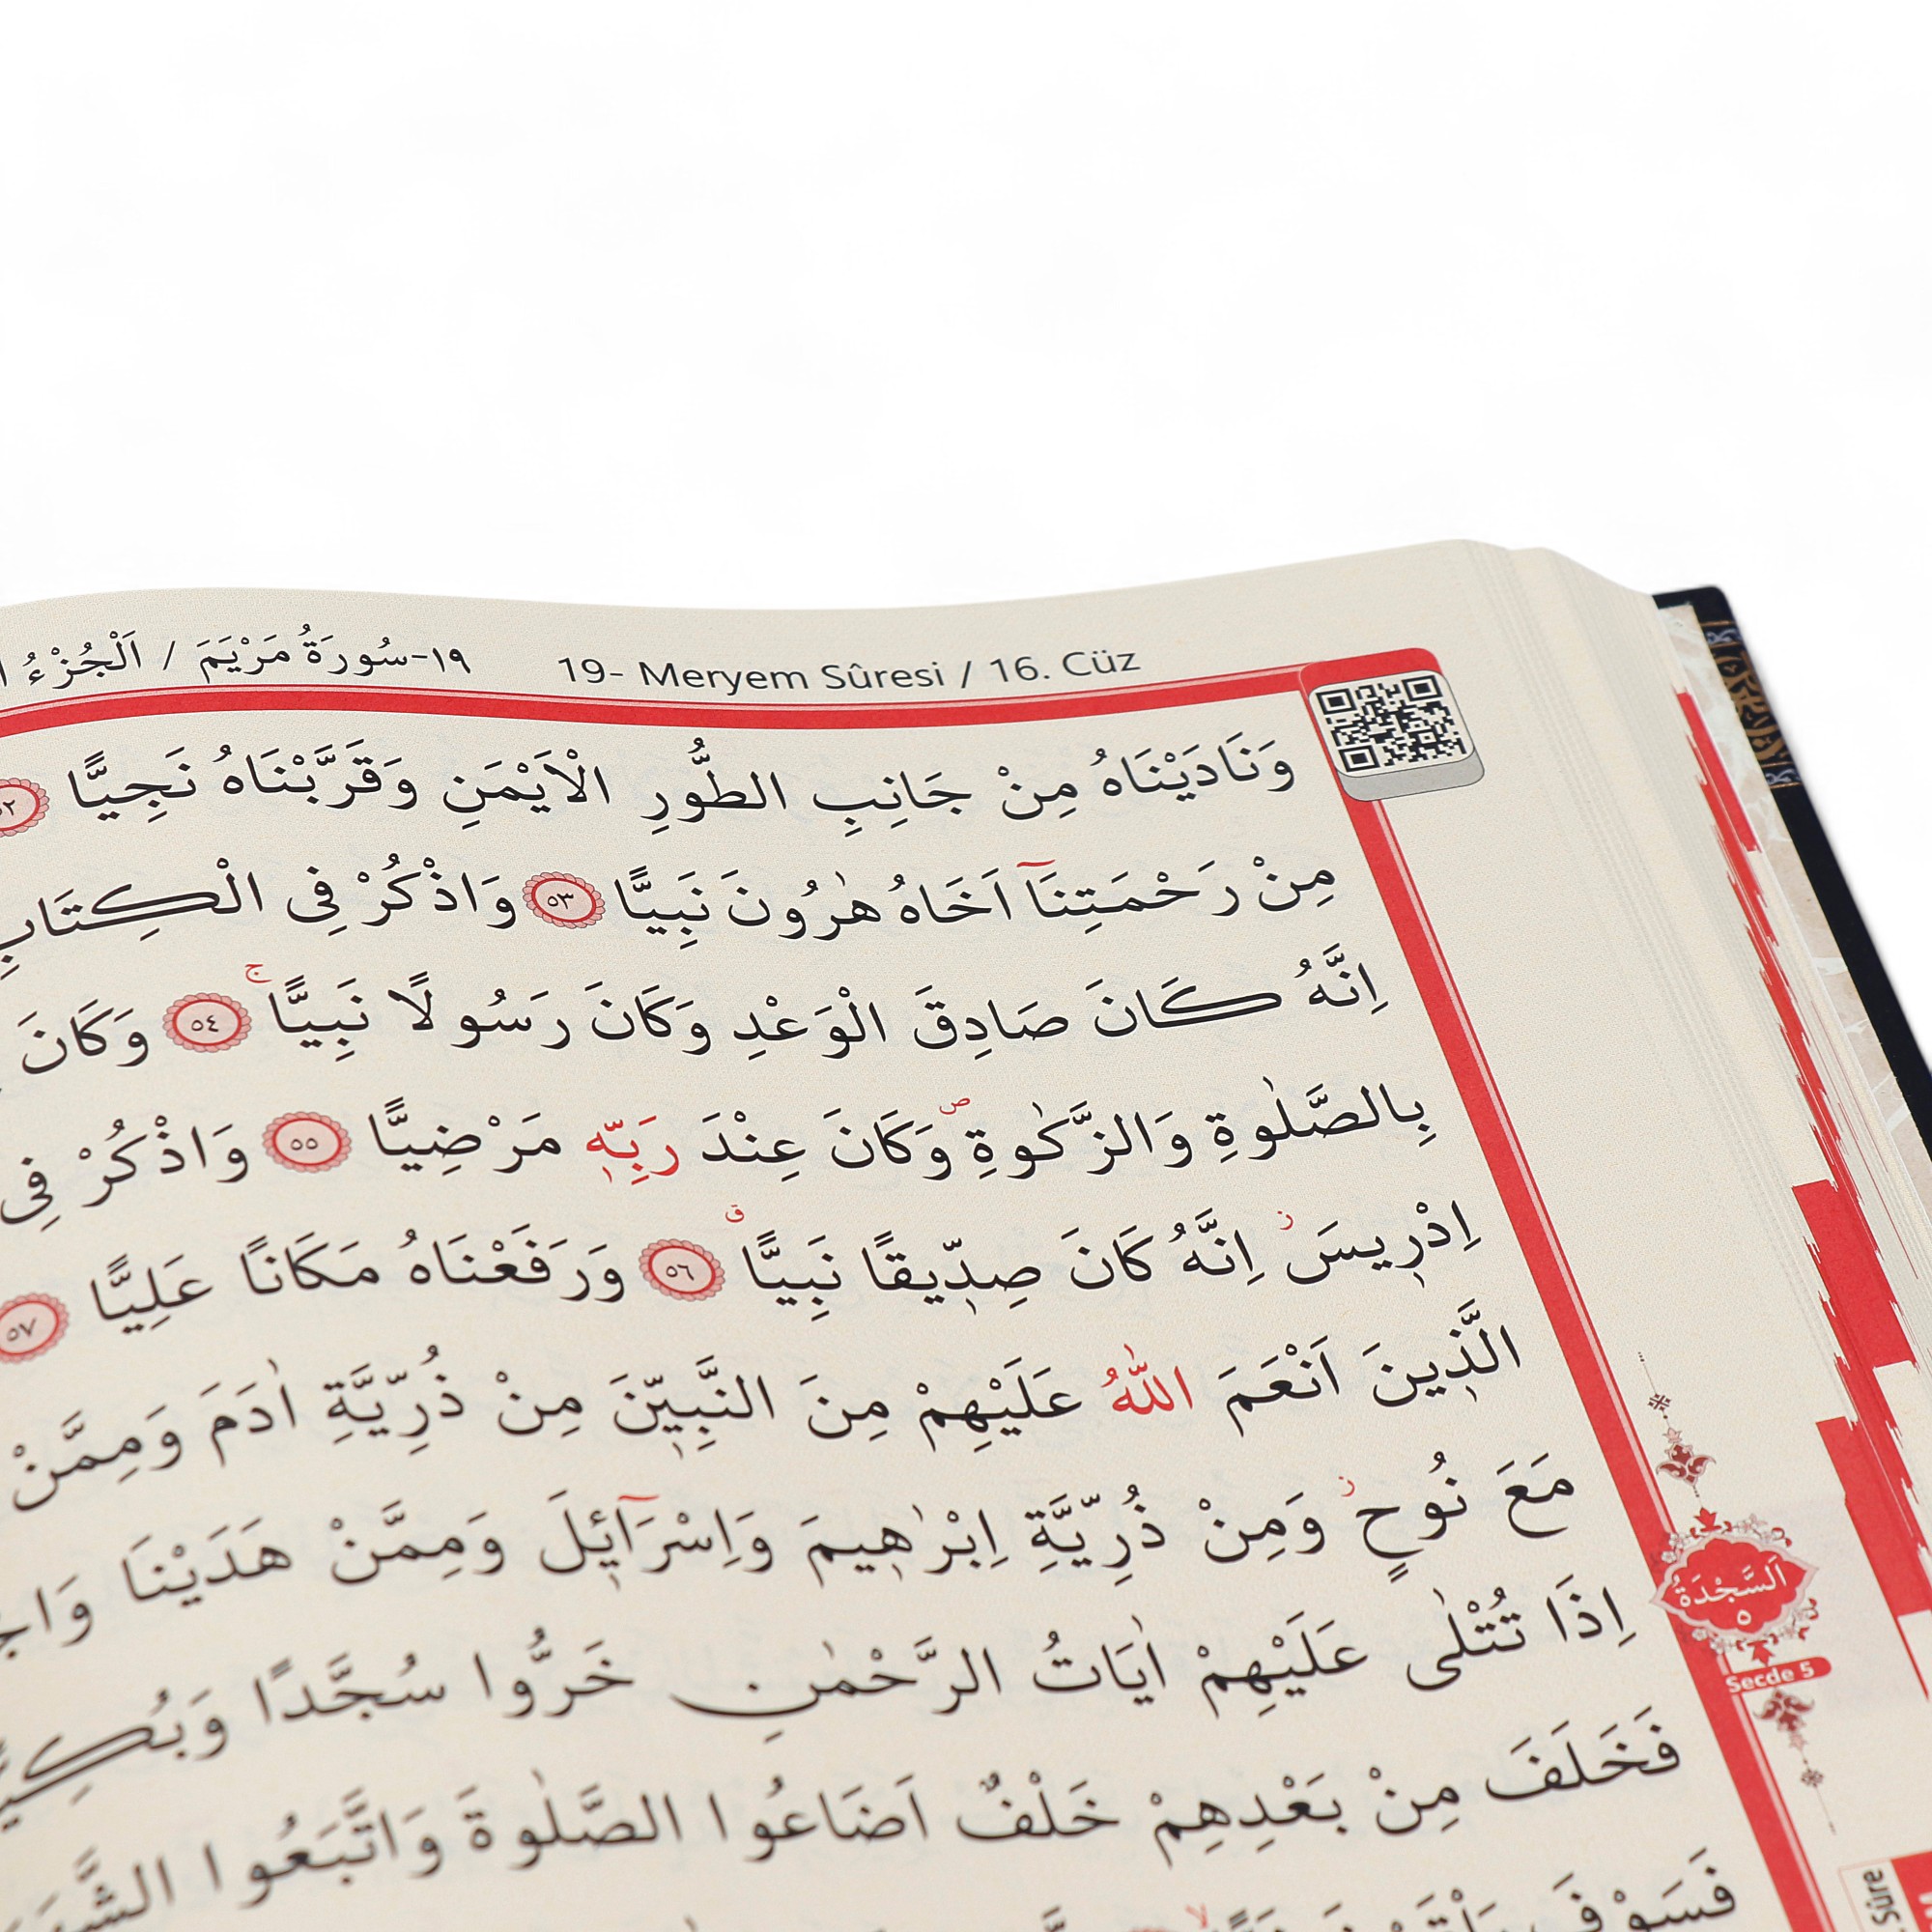 ١٩-سُورَةُ مَرْيَمَ / اَلْجُزْءُ
19- Meryem Sûresi / 16. Cüz
وَنَادَيْنَاهُ مِنْ جَانِبِ الطُّورِ الْاَيْمَنِ وَقَرَّبْنَاهُ نَجِيًّا ٥٢
مِنْ رَحْمَتِنَآ اَخَاهُ هٰرُونَ نَبِيًّا ٥٣ وَاذْكُرْ فِى الْكِتَابِ
اِنَّهُ كَانَ صَادِقَ الْوَعْدِ وَكَانَ رَسُولًا نَبِيًّاۚ ٥٤ وَكَانَ
بِالصَّلٰوةِ وَالزَّكٰوةِۖ وَكَانَ عِنْدَ رَبِّه۪ مَرْضِيًّا ٥٥ وَاذْكُرْ فِى
اِدْر۪يسَۘ اِنَّهُ كَانَ صِدّ۪يقًا نَبِيًّاۗ ٥٦ وَرَفَعْنَاهُ مَكَانًا عَلِيًّا ٥٧
الَّذ۪ينَ اَنْعَمَ اللّٰهُ عَلَيْهِمْ مِنَ النَّبِيّ۪نَ مِنْ ذُرِّيَّةِ اٰدَمَ وَمِمَّنْ
مَعَ نُوحٍۘ وَمِنْ ذُرِّيَّةِ اِبْرٰه۪يمَ وَاِسْرَآئ۪لَ وَمِمَّنْ هَدَيْنَا
اَلسَّجْدَةُ
٥
Secde 5
اِذَا تُتْلٰى عَلَيْهِمْ اٰيَاتُ الرَّحْمٰنِ خَرُّوا سُجَّدًا وَبُكِيًّا
فَخَلَفَ مِنْ بَعْدِهِمْ خَلْفٌ اَضَاعُوا الصَّلٰوةَ وَاتَّبَعُوا
فَسَوْفَ
Sûre